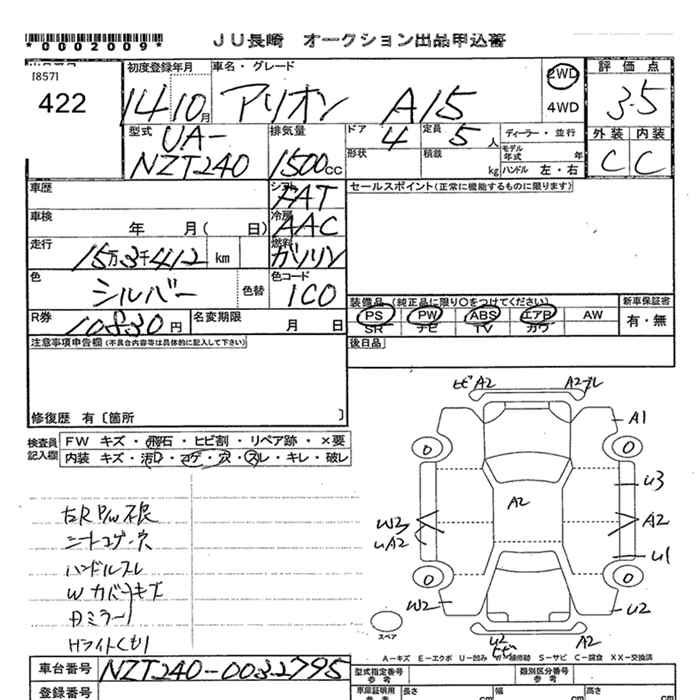 *0002009* JU長崎 オークション出品申込書
[857]
422
初度登録年月 14 10月
車名・グレード アリオン A15
2WD
4WD
評価点 3.5
外装 内装
C C
型式 UA-
NZT240
排気量 1500cc
ドア 4 定員 5人
形状 積載 kg
ディーラー・並行
モデル年式 年
ハンドル 左・右
車歴
シフト FAT
セールスポイント(正常に機能するものに限ります)
車検 年 月( 日)
冷房 AAC
走行 15万3千412 km
燃料 ガソリン
色 シルバー 色替
色コード 1C0
R券 10830円 名変期限 月 日
装備品(純正品に限り○をつけてください)
PS PW ABS エアB AW
SR ナビ TV カワ
新車保証書
有・無
注意事項申告欄(不具合内容等は具体的に記入して下さい)
後日品
修復歴 有〔箇所 〕
検査員記入欄
FW キズ・飛石・ヒビ割・リペア跡・×要
内装 キズ・汚レ・コゲ・穴・スレ・キレ・破レ
右R P/W不良
シートコゲ・穴
ハンドルスレ
Wカバーキズ
Hライトくもり
ヒビA2 A2
A1
0 0
U3
A2
W3
UA2
A2
U1
0 0
W2 U2
スペア
U2
ヒビ
A2
A-キズ E-エクボ U-凹み W-補修跡 S-サビ C-腐食 XX-交換済
車台番号 NZT240-0032795
登録番号
型式指定番号
参考
類別区分番号
参考
車庫証明用
参考
長さ cm 幅 cm 高さ cm